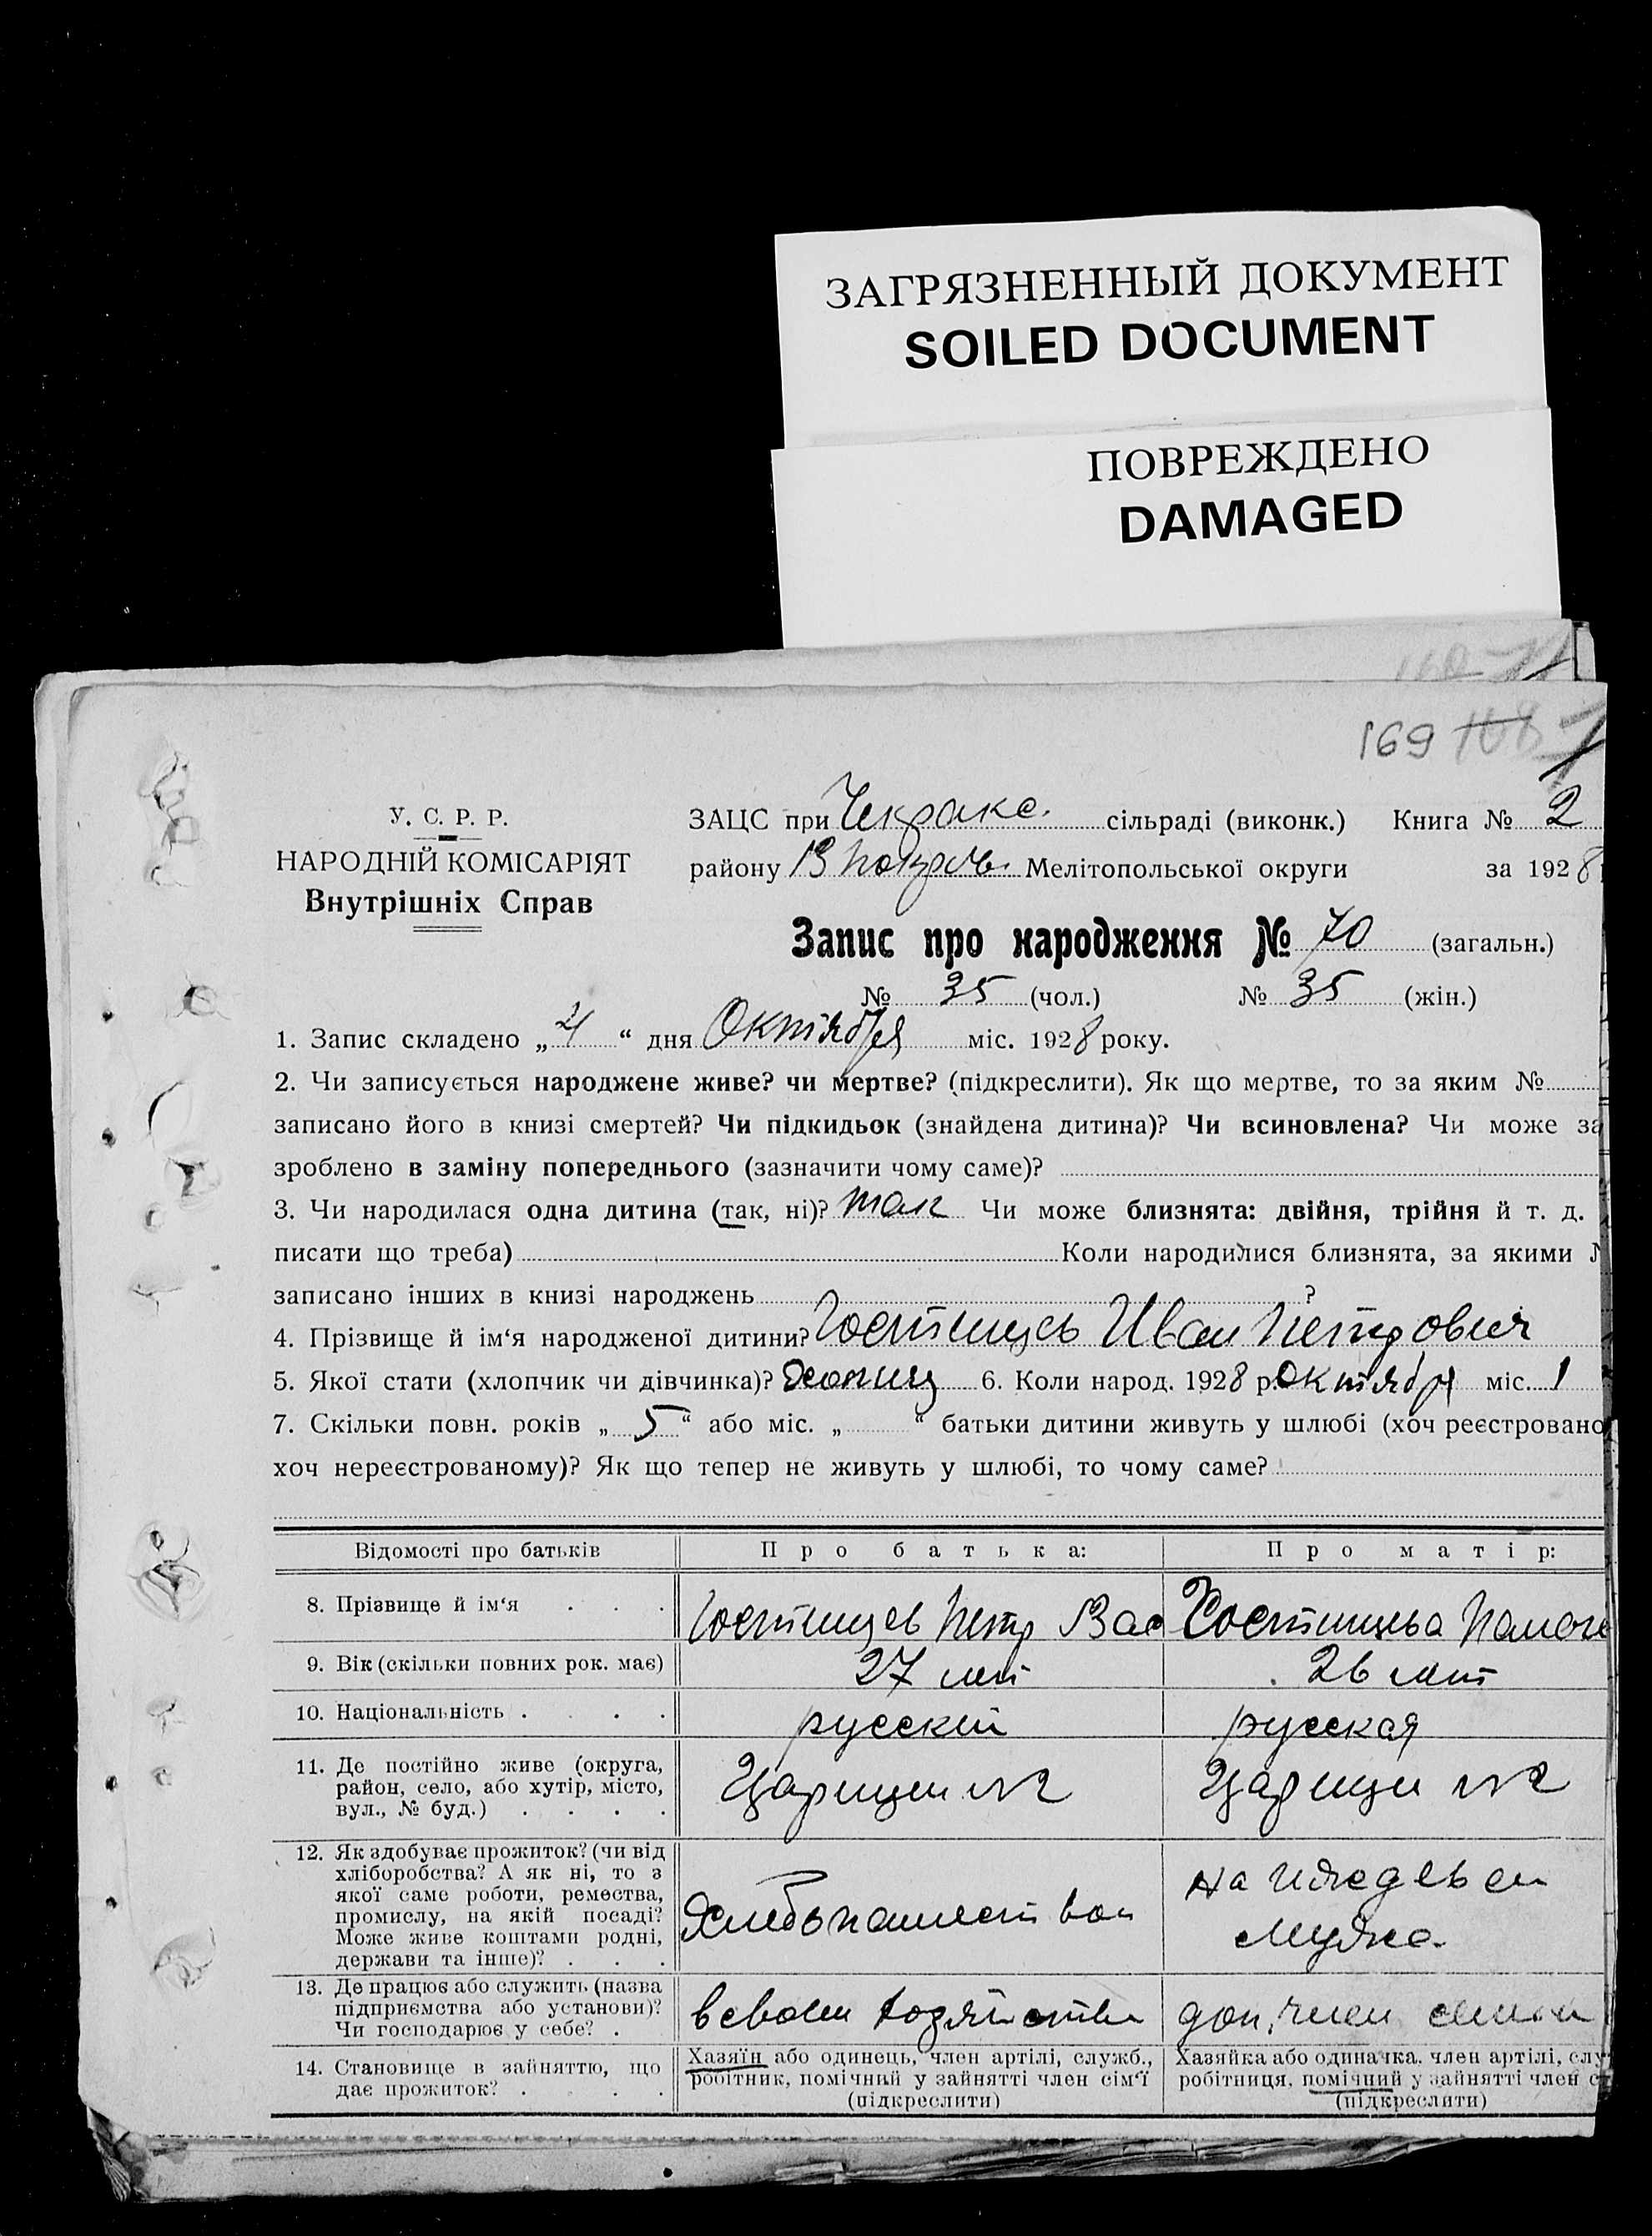 ЗАГРЯЗНЕННЫЙ ДОКУМЕНТ
SOILED DOCUMENT
ПОВРЕЖДЕНО
DAMAGED
169
У. С. Р. Р.
НАРОДНІЙ КОМІСАРІЯТ
Внутрішніх Справ
ЗАЦС при Чекракс. сільраді (виконк.) Книга № 2
району В Покров. Мелітопольської округи за 1928
Запис про народження № 70 (загальн.)
№ 35 (чол.) № 35 (жін.)
1. Запис складено „ 4 “ дня Октября міс. 1928 року.
2. Чи записується народжене живе? чи мертве? (підкреслити). Як що мертве, то за яким №
записано його в книзі смертей? Чи підкидьок (знайдена дитина)? Чи всиновлена? Чи може за
зроблено в заміну попереднього (зазначити чому саме)?
3. Чи народилася одна дитина (так, ні)? так Чи може близнята: двійня, трійня й т. д.
писати що треба) Коли народилися близнята, за якими
записано інших в книзі народжень ?
4. Прізвище й ім‘я народженої дитини? Гостищев Иван Петрович
5. Якої стати (хлопчик чи дівчинка)? 6. Коли народ. 1928 р. Октября міс. 1
7. Скільки повн. років „ 5 “ або міс. „ “ батьки дитини живуть у шлюбі (хоч реєстровано
хоч нереєстрованому)? Як що тепер не живуть у шлюбі, то чому саме?
Відомості про батьків Про батька: Про матір:
8. Прізвище й ім‘я . . . Гостищев Петр Вас Гостищева
9. Вік (скільки повних рок. має) 27 лет 26 лет
10. Національність . . . . русский русская
11. Де постійно живе (округа,
район, село, або хутір, місто,
вул., № буд.) . . . .
Царицин №2 Царицин №2
12. Як здобуває прожиток? (чи від
хліборобства? А як ні, то з
якої саме роботи, ремества,
промислу, на якій посаді?
Може живе коштами родні,
держави та інше)? . . .
Хлебопашеством
на иждевен
мужа
13. Де працює або служить (назва
підприємства або установи)?
Чи господарює у себе? .
в своем хозяйстве
14. Становище в зайняттю, що
дає прожиток? . . .
Хазяїн або одинець, член артілі, служб.,
робітник, помічний у зайнятті член сім‘ї
(підкреслити)
Хазяйка або одиначка. член артілі, слу
робітниця, помічний у зайнятті член с
(підкреслити)